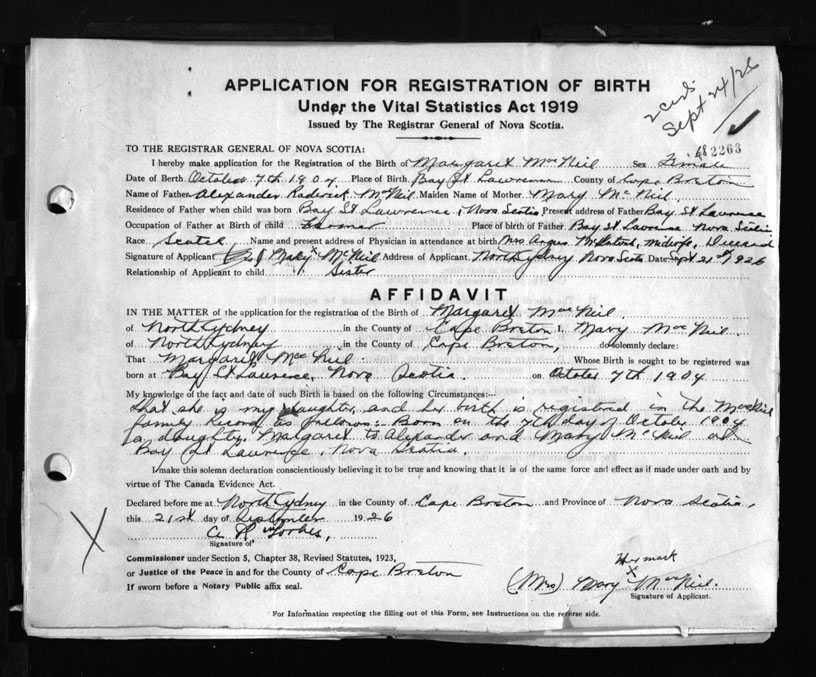 2 cds.
Sept 24/26
APPLICATION FOR REGISTRATION OF BIRTH
Under the Vital Statistics Act 1919
Issued by The Registrar General of Nova Scotia.
TO THE REGISTRAR GENERAL OF NOVA SCOTIA:
2263
I hereby make application for the Registration of the Birth of Margaret MacNeil Sex Female
Date of Berth October 7th 1904 Place of Birth Bay St Lawrence County of Cape Breton
Name of Father Alexander Roderick McNeil Maiden Name of Mother Mary McNeil
Residence of Father when child was born Bay St Lawrence, Nova Scotia Present address of Father Bay St Lawrence
Occupation of Father at Birth of child Farmer Place of birth of Father Bay St Lawrence Nova Scotia
Race Scotch Name and present address of Physician in attendance at birth (Mrs Angus midwife, Deceased
Signature of Applicant Mary X McNeil Address of Applicant North Sydney Nova Scotia Date Sept 21st 1926
Relationship of Applicant to child Sister
AFFIDAVIT
IN THE MATTER of the application for the registration of the Birth of Margaret MacNeil
of North Sydney in the County of Cape Breton I, Mary MacNeil
of North Sydney in the County of Cape Breton, do solemnly declare:
That Margaret MacNeil Whose Birth is sought to be registered was
born at Bay St Lawrence, Nova Scotia on October 7th 1904
My knowledge of the fact and date of such Birth is based on the following Circumstances:—
that she is my daughter, and her birth is registered in the MacNeil
family record as follows: Born on the 7th day of October 1904
a daughter, Margaret to Alexander and Mary McNeil at
Bay St Lawrence, Nova Scotia.
I make this solemn declaration conscientiously believing it to be true and knowing that it is of the same force and effect as if made under oath and by
virtue of The Canada Evidence Act.
Declared before me at North Sydney in the County of Cape Breton and Province of Nova Scotia,
this 21st day of September 1926
Forbes,
Signature of
Commissioner under Section 5, Chapter 38, Revised Statutes, 1923,
or Justice of the Peace in and for the County of Cape Breton
If sworn before a Notary Public affix seal.
Her mark
X
(Mrs) Mary MacNeil.
Signature of Applicant.
For Information respecting the filling out of this Form, see Instructions on the reverse side.